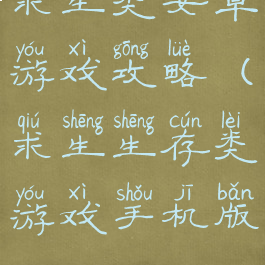 求生类安卓
yóu xì gōng lüè
游戏攻略（
qiú shēng shēng cún lèi
求生生存类
yóu xì shǒu jī bǎn
游戏手机版